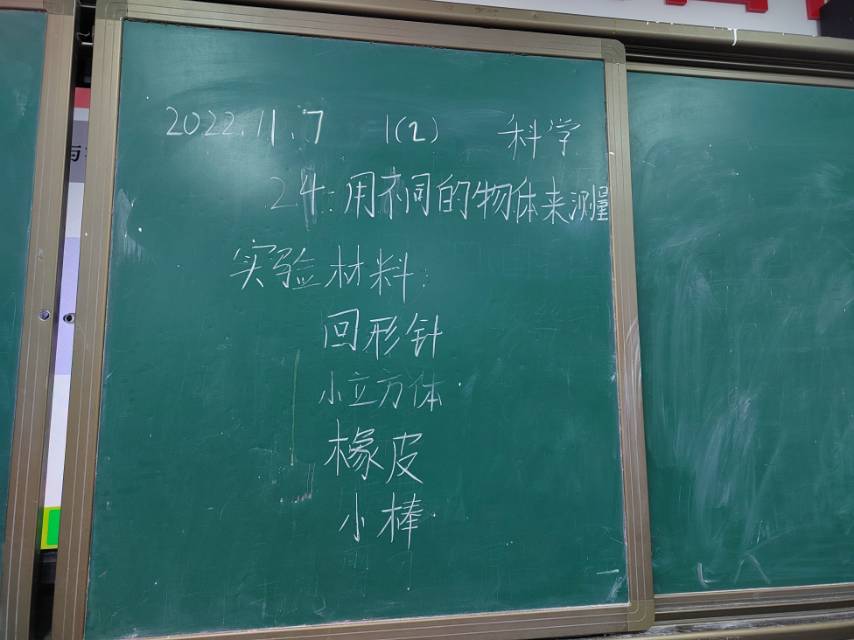 2022.11.7 1(2) 科学
2.4:用不同的物体来测量
实验材料:
回形针
小立方体
橡皮
小棒